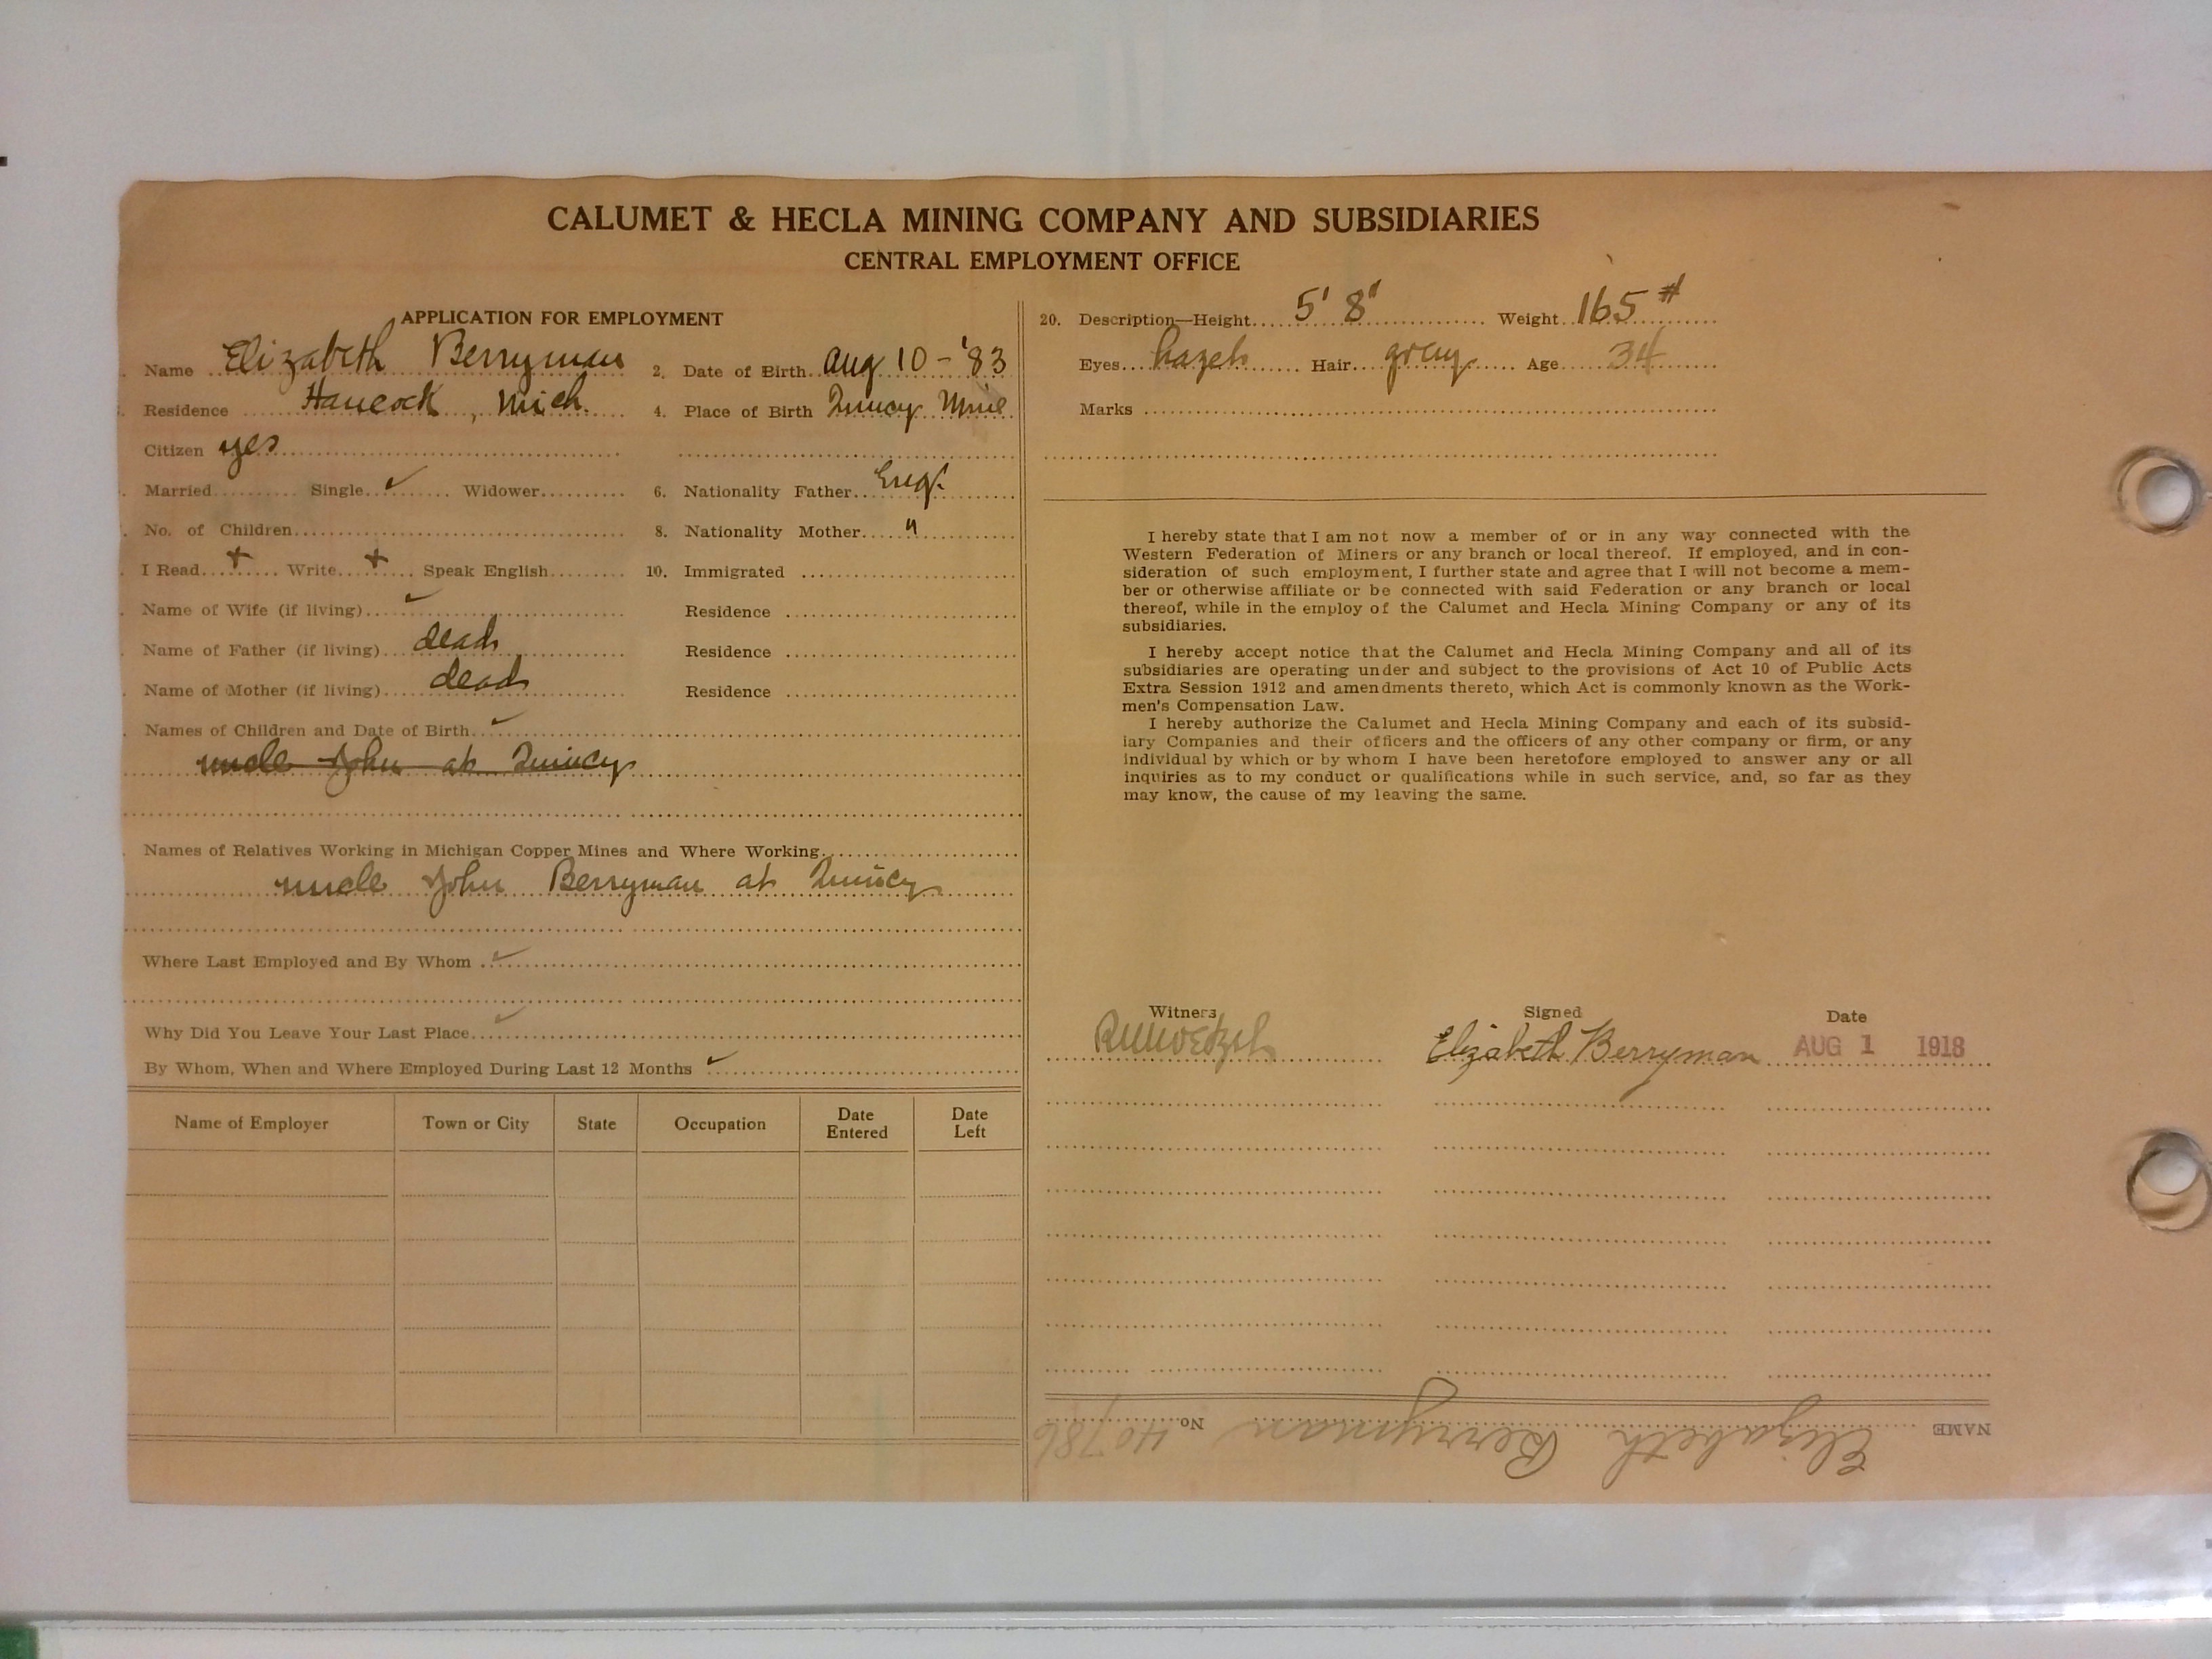 CALUMET & HECLA MINING COMPANY AND SUBSIDIARIES
CENTRAL EMPLOYMENT OFFICE
APPLICATION FOR EMPLOYMENT
Name Elizabeth Berryman 2. Date of Birth Aug 10 - '83
Residence Hancock, Mich. 4. Place of Birth Quincy Mine
Citizen yes
Married Single ✓ Widower 6. Nationality Father Eng.
No. of Children 8. Nationality Mother "
I Read + Write + Speak English 10. Immigrated
Name of Wife (if living) ✓ Residence
Name of Father (if living) dead Residence
Name of Mother (if living) dead Residence
Names of Children and Date of Birth ✓
uncle John at Quincy
Names of Relatives Working in Michigan Copper Mines and Where Working
uncle John Berryman at Quincy
Where Last Employed and By Whom ✓
Why Did You Leave Your Last Place ✓
By Whom, When and Where Employed During Last 12 Months ✓
Name of Employer Town or City State Occupation Date Entered Date Left
20. Description—Height 5' 8" Weight 165 #
Eyes hazel Hair gray Age 34
Marks
I hereby state that I am not now a member of or in any way connected with the
Western Federation of Miners or any branch or local thereof. If employed, and in con-
sideration of such employment, I further state and agree that I will not become a mem-
ber or otherwise affiliate or be connected with said Federation or any branch or local
thereof, while in the employ of the Calumet and Hecla Mining Company or any of its
subsidiaries.
I hereby accept notice that the Calumet and Hecla Mining Company and all of its
subsidiaries are operating under and subject to the provisions of Act 10 of Public Acts
Extra Session 1912 and amendments thereto, which Act is commonly known as the Work-
men's Compensation Law.
I hereby authorize the Calumet and Hecla Mining Company and each of its subsid-
iary Companies and their officers and the officers of any other company or firm, or any
individual by which or by whom I have been heretofore employed to answer any or all
inquiries as to my conduct or qualifications while in such service, and, so far as they
may know, the cause of my leaving the same.
Witness Signed Date
Elizabeth Berryman AUG 1 1918
NAME Elizabeth Berryman No. 40786